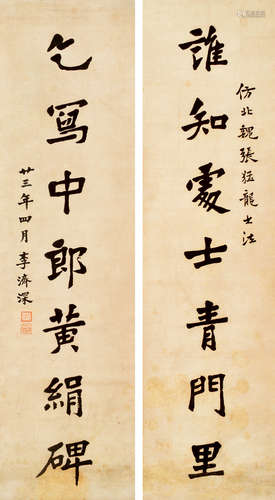 誰知處士青門里
仿北魏張猛龍書法
乞寫中郎黃絹碑
廿三年四月李濟深